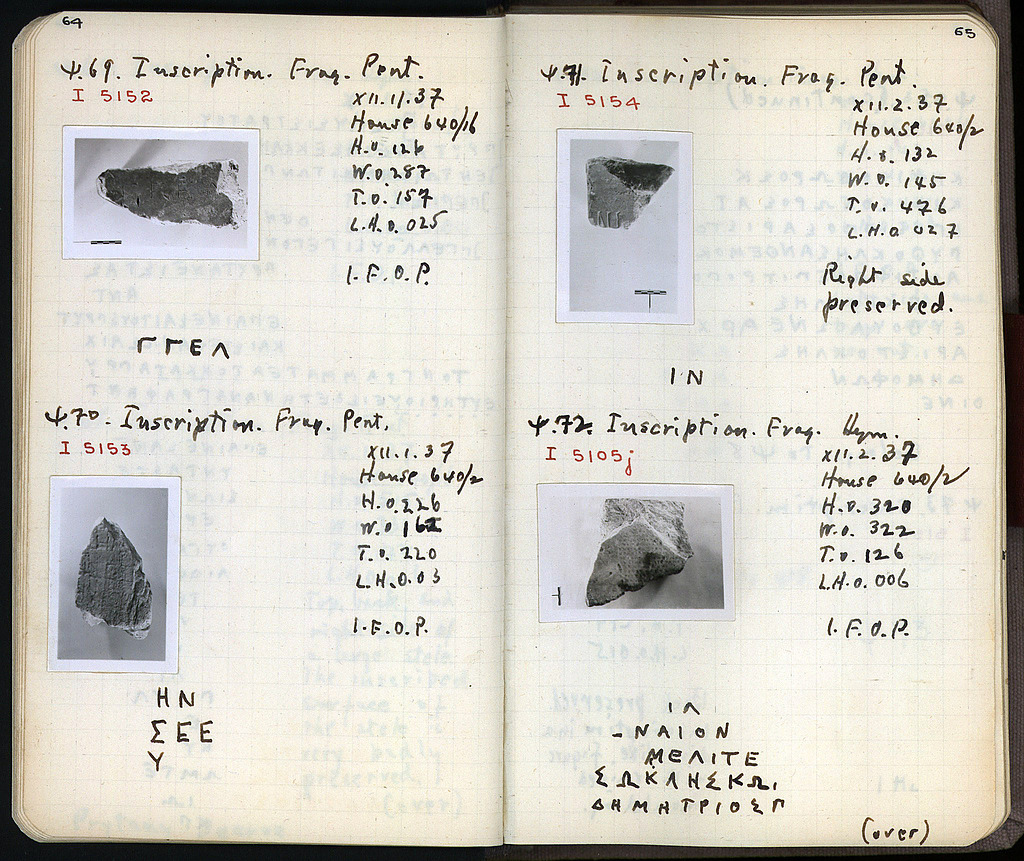 64
Ψ.69. Inscription. Frag. Pent.
I 5152
XII.1.37
House 640/16
H.0.126
W.0.287
T.0.157
L.H.0.025
I.F.O.P.
ΓΓΕΛ
Ψ.70. Inscription. Frag. Pent.
I 5153
XII.1.37
House 640/2
H.0.226
W.0.162
T.0.220
L.H.0.03
I.F.O.P.
ΗΝ
ΣΕΕ
Υ
65
Ψ.71. Inscription. Frag. Pent.
I 5154
XII.2.37
House 640/2
H.0.132
W.0.145
T.0.476
L.H.0.027
Right side
preserved.
ΙΝ
Ψ.72. Inscription. Frag. Hym.
I 5105j
XII.2.37
House 640/2
H.0.320
W.0.322
T.0.126
L.H.0.006
I.F.O.P.
ΙΛ
ΝΑΙΟΝ
ΜΕΛΙΤΕ
ΣΩΚΛΗΣΚΩΙ
ΔΗΜΗΤΡΙΟΣΓ
(over)